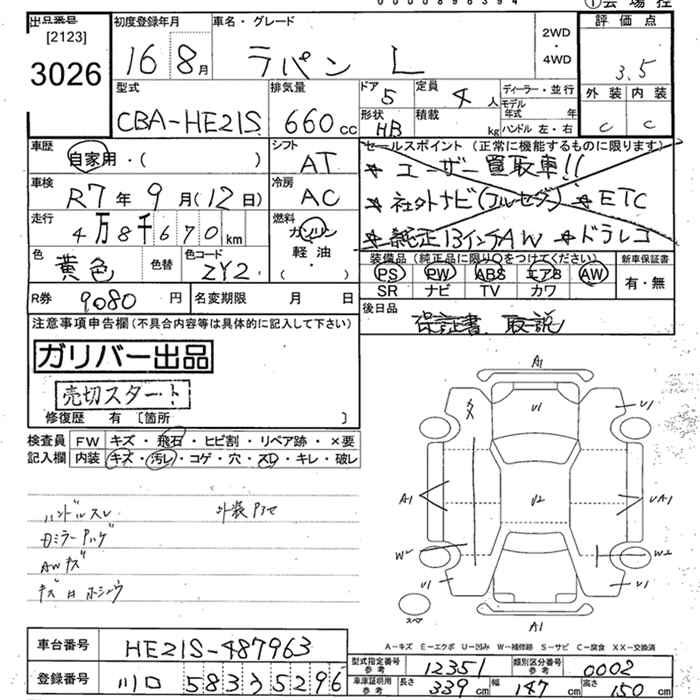 0000896394
①会場控
出品番号 初度登録年月 車名・グレード 評価点
[2123]
3026
16 8月 ラパン L 2WD ・ 4WD 3.5
型式 排気量 ドア 定員 ディーラー・並行 外装 内装
CBA-HE21S 660cc 5 4人 モデル年式 年 C C
形状 積載 ハンドル 左・右
HB kg
車歴 シフト セールスポイント (正常に機能するものに限ります)
自家用・( ) AT * ユーザー買取車!!
車検 冷房
R7年9月(12日) AC * 社外ナビ(アルセダ) * ETC
走行 燃料
4万8千670km ガソリン * 純正13インチAW * ドラレコ
軽油
色 色替 色コード 装備品 (純正品に限り○をつけてください) 新車保証書
黄色 ZY2 PS PW ABS エアB AW 有・無
SR ナビ TV カワ
R券 9080円 名変期限 月 日 後日品
保証書 取説
注意事項申告欄 (不具合内容等は具体的に記入して下さい)
ガリバー出品
売切スタート
修復歴 有 [箇所 ]
検査員 FW キズ・飛石・ヒビ割・リペア跡・×要
記入欄 内装 キズ・汚レ・コゲ・穴・スレ・キレ・破レ
ハンドルスレ 外装アセ
AWキズ
A1
U1
U1
A1
U2
UA1
W2
U1
U1
A1
スペア
A-キズ E-エクボ U-凹み W-補修跡 S-サビ C-腐食 XX-交換済
車台番号 HE21S-487963
型式指定番号 参考 12351 類別区分番号 参考 0002
登録番号 川口 583 う 5296
車庫証明用 参考 長さ 339cm 幅 147cm 高さ 150cm